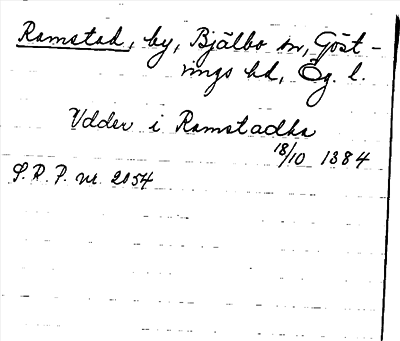 Ramstad, by, Bjälbo sn, Göst-
rings hd, Ög. l.
Udder i Ramstadha
18/10 1384
S.R.P. nr. 2054